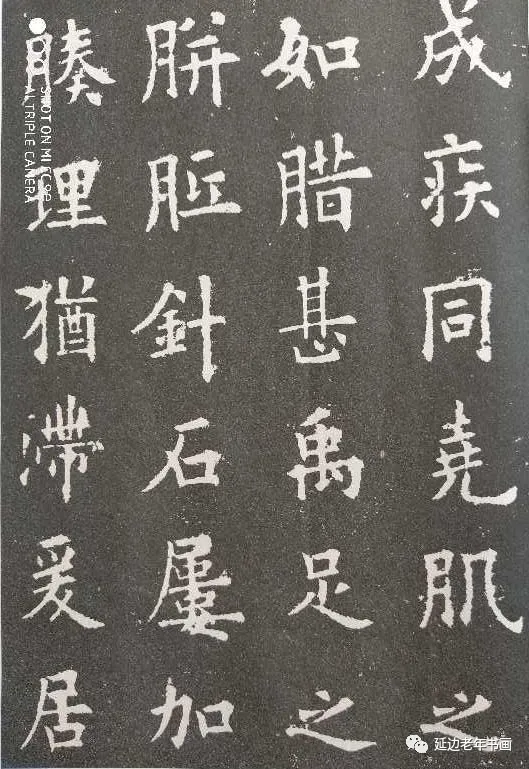 成疾同堯肌之
如腊甚禹足之
胼胝針石屢加
腠理猶滯爰居
SHOT ON MI CC 9e
AI TRIPLE CAMERA
延边老年书画